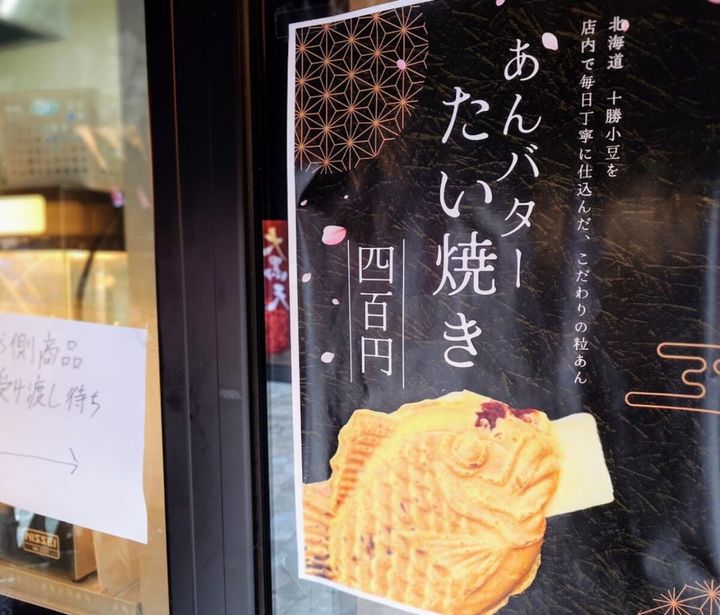 北海道 十勝小豆を
店内で毎日丁寧に仕込んだ、こだわりの粒あん
あんバター
たい焼き
四百円
大黒天
側商品
受け渡し待ち
NISSEI